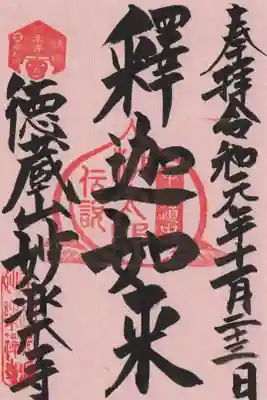 奉拝 令和元年十一月二十三日
釋迦如来
徳蔵山妙楽寺
伝説